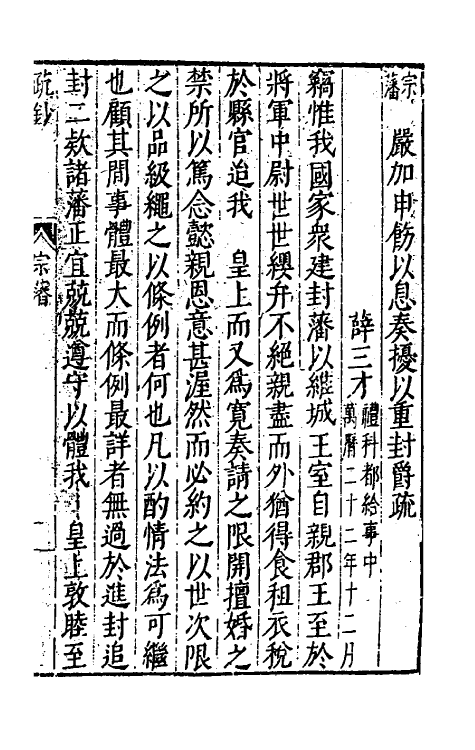 宗藩
嚴加申飭以息奏擾以重封爵疏
薛三才
禮科都給事中
萬曆二十二年十二月
竊惟我國家衆建封藩以維城王室自親郡王至於
將軍中尉世世纓弁不絕親盡而外猶得食租衣稅
於縣官迨我　皇上而又爲寬奏請之限開擅婚之
禁所以篤念懿親恩意甚渥然而必約之以世次限
之以品級繩之以條例者何也凡以酌情法爲可繼
也顧其間事體最大而條例最詳者無過於進封追
封二欵諸藩正宜兢兢遵守以體我　皇上敦睦至
疏鈔
宗藩